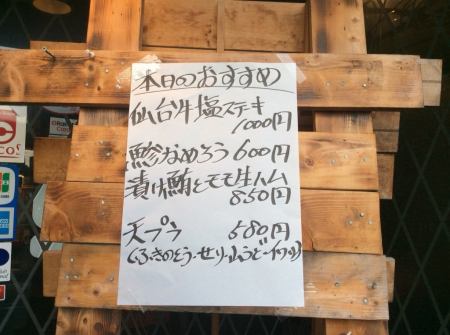 本日のおすすめ
仙台牛塩ステーキ
1000円
鯵なめろう 600円
漬け鮪とモモ生ハム
850円
天プラ 580円
(ふきのとう・せり・山うど・イワシ)